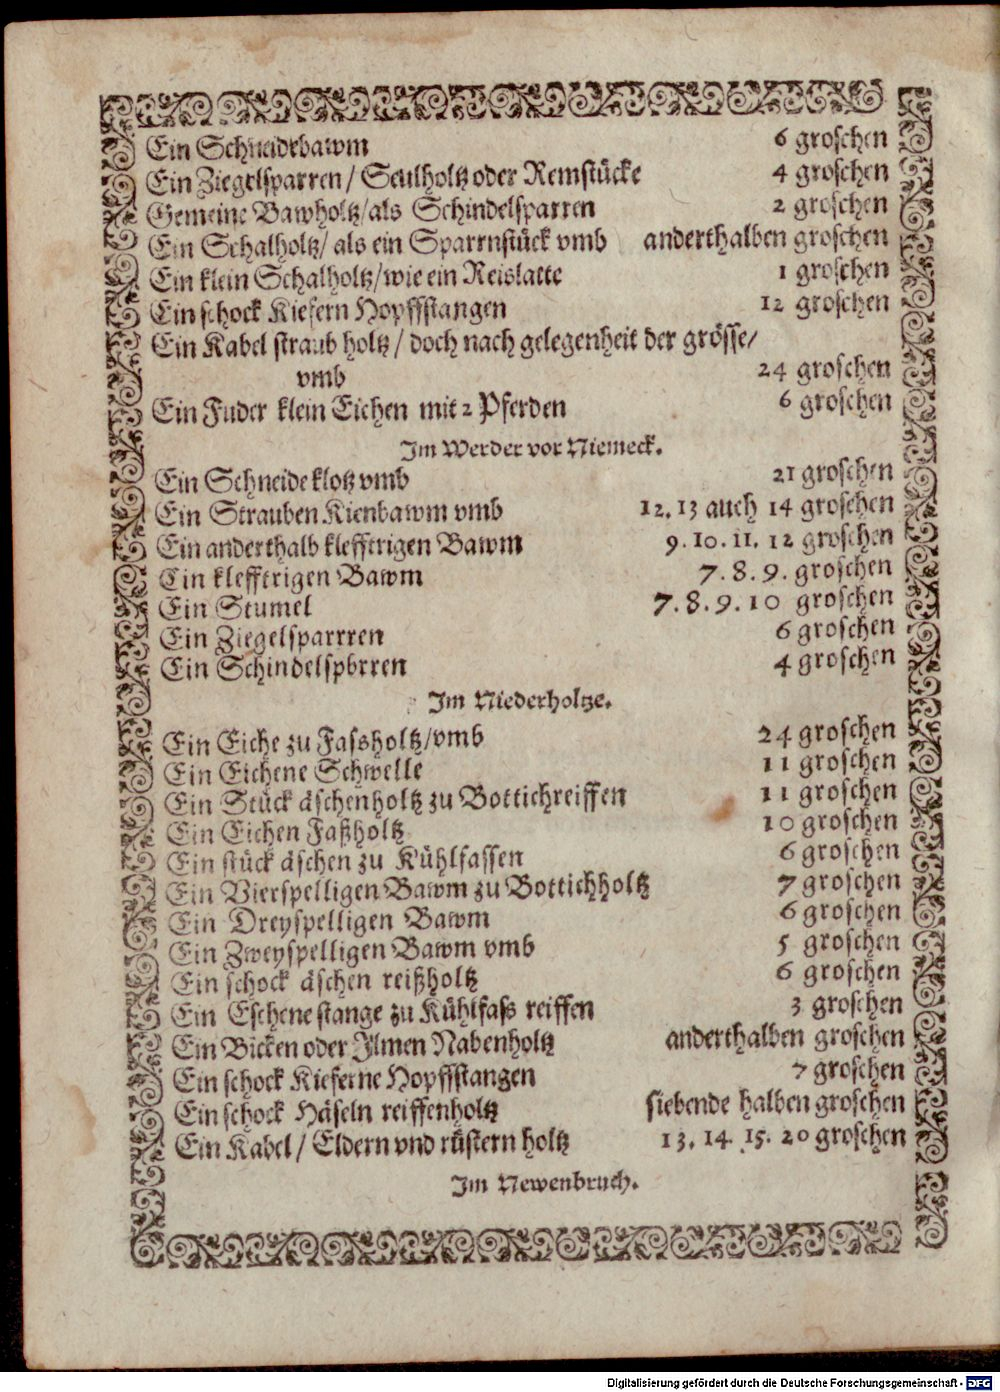 Ein Schneidebawm 6 groschen
Ein Ziegelsparren / Seulholtz oder Remstücke 4 groschen
Gemeine Bawholtz/als Schindelsparren 2 groschen
Ein Schalholtz/ als ein Sparrnstück vmb anderthalben groschen
Ein klein Schalholtz/wie ein Reislatte 1 groschen
Ein schock Kiefern Hopffstangen 12 groschen
Ein Kabel straub holtz / doch nach gelegenheit der grösse/
vmb 24 groschen
Ein Fuder klein Eichen mit 2 Pferden 6 groschen
Im Werder vor Niemeck.
Ein Schneide klotz vmb 21 groschen
Ein Strauben Kienbawm vmb 12. 13 auch 14 groschen
Ein anderthalb klefftrigen Bawm 9. 10. 11. 12 groschen
Ein klefftrigen Bawm 7. 8. 9. groschen
Ein Stumel 7. 8. 9. 10 groschen
Ein Ziegelsparrren 6 groschen
Ein Schindelspbrren 4 groschen
Im Niederholtze.
Ein Eiche zu Fassholtz/vmb 24 groschen
Ein Eichene Schwelle 11 groschen
Ein Stück äschenholtz zu Bottichreiffen 11 groschen
Ein Eichen Faßholtz 10 groschen
Ein stück äschen zu Kühlfassen 6 groschen
Ein Vierspelligen Bawm zu Bottichholtz 7 groschen
Ein Dreyspelligen Bawm 6 groschen
Ein Zweyspelligen Bawm vmb 5 groschen
Ein schock äschen reißholtz 6 groschen
Ein Eschene stange zu Kühlfass reiffen 3 groschen
Ein Bicken oder Ilmen Nabenholtz anderthalben groschen
Ein schock Kieferne Hopffstangen 7 groschen
Ein schock Häseln reiffenholtz siebende halben groschen
Ein Kabel / Eldern vnd rüstern holtz 13. 14. 15. 20 groschen
Im Newenbruch.
Digitalisierung gefördert durch die Deutsche Forschungsgemeinschaft - DFG